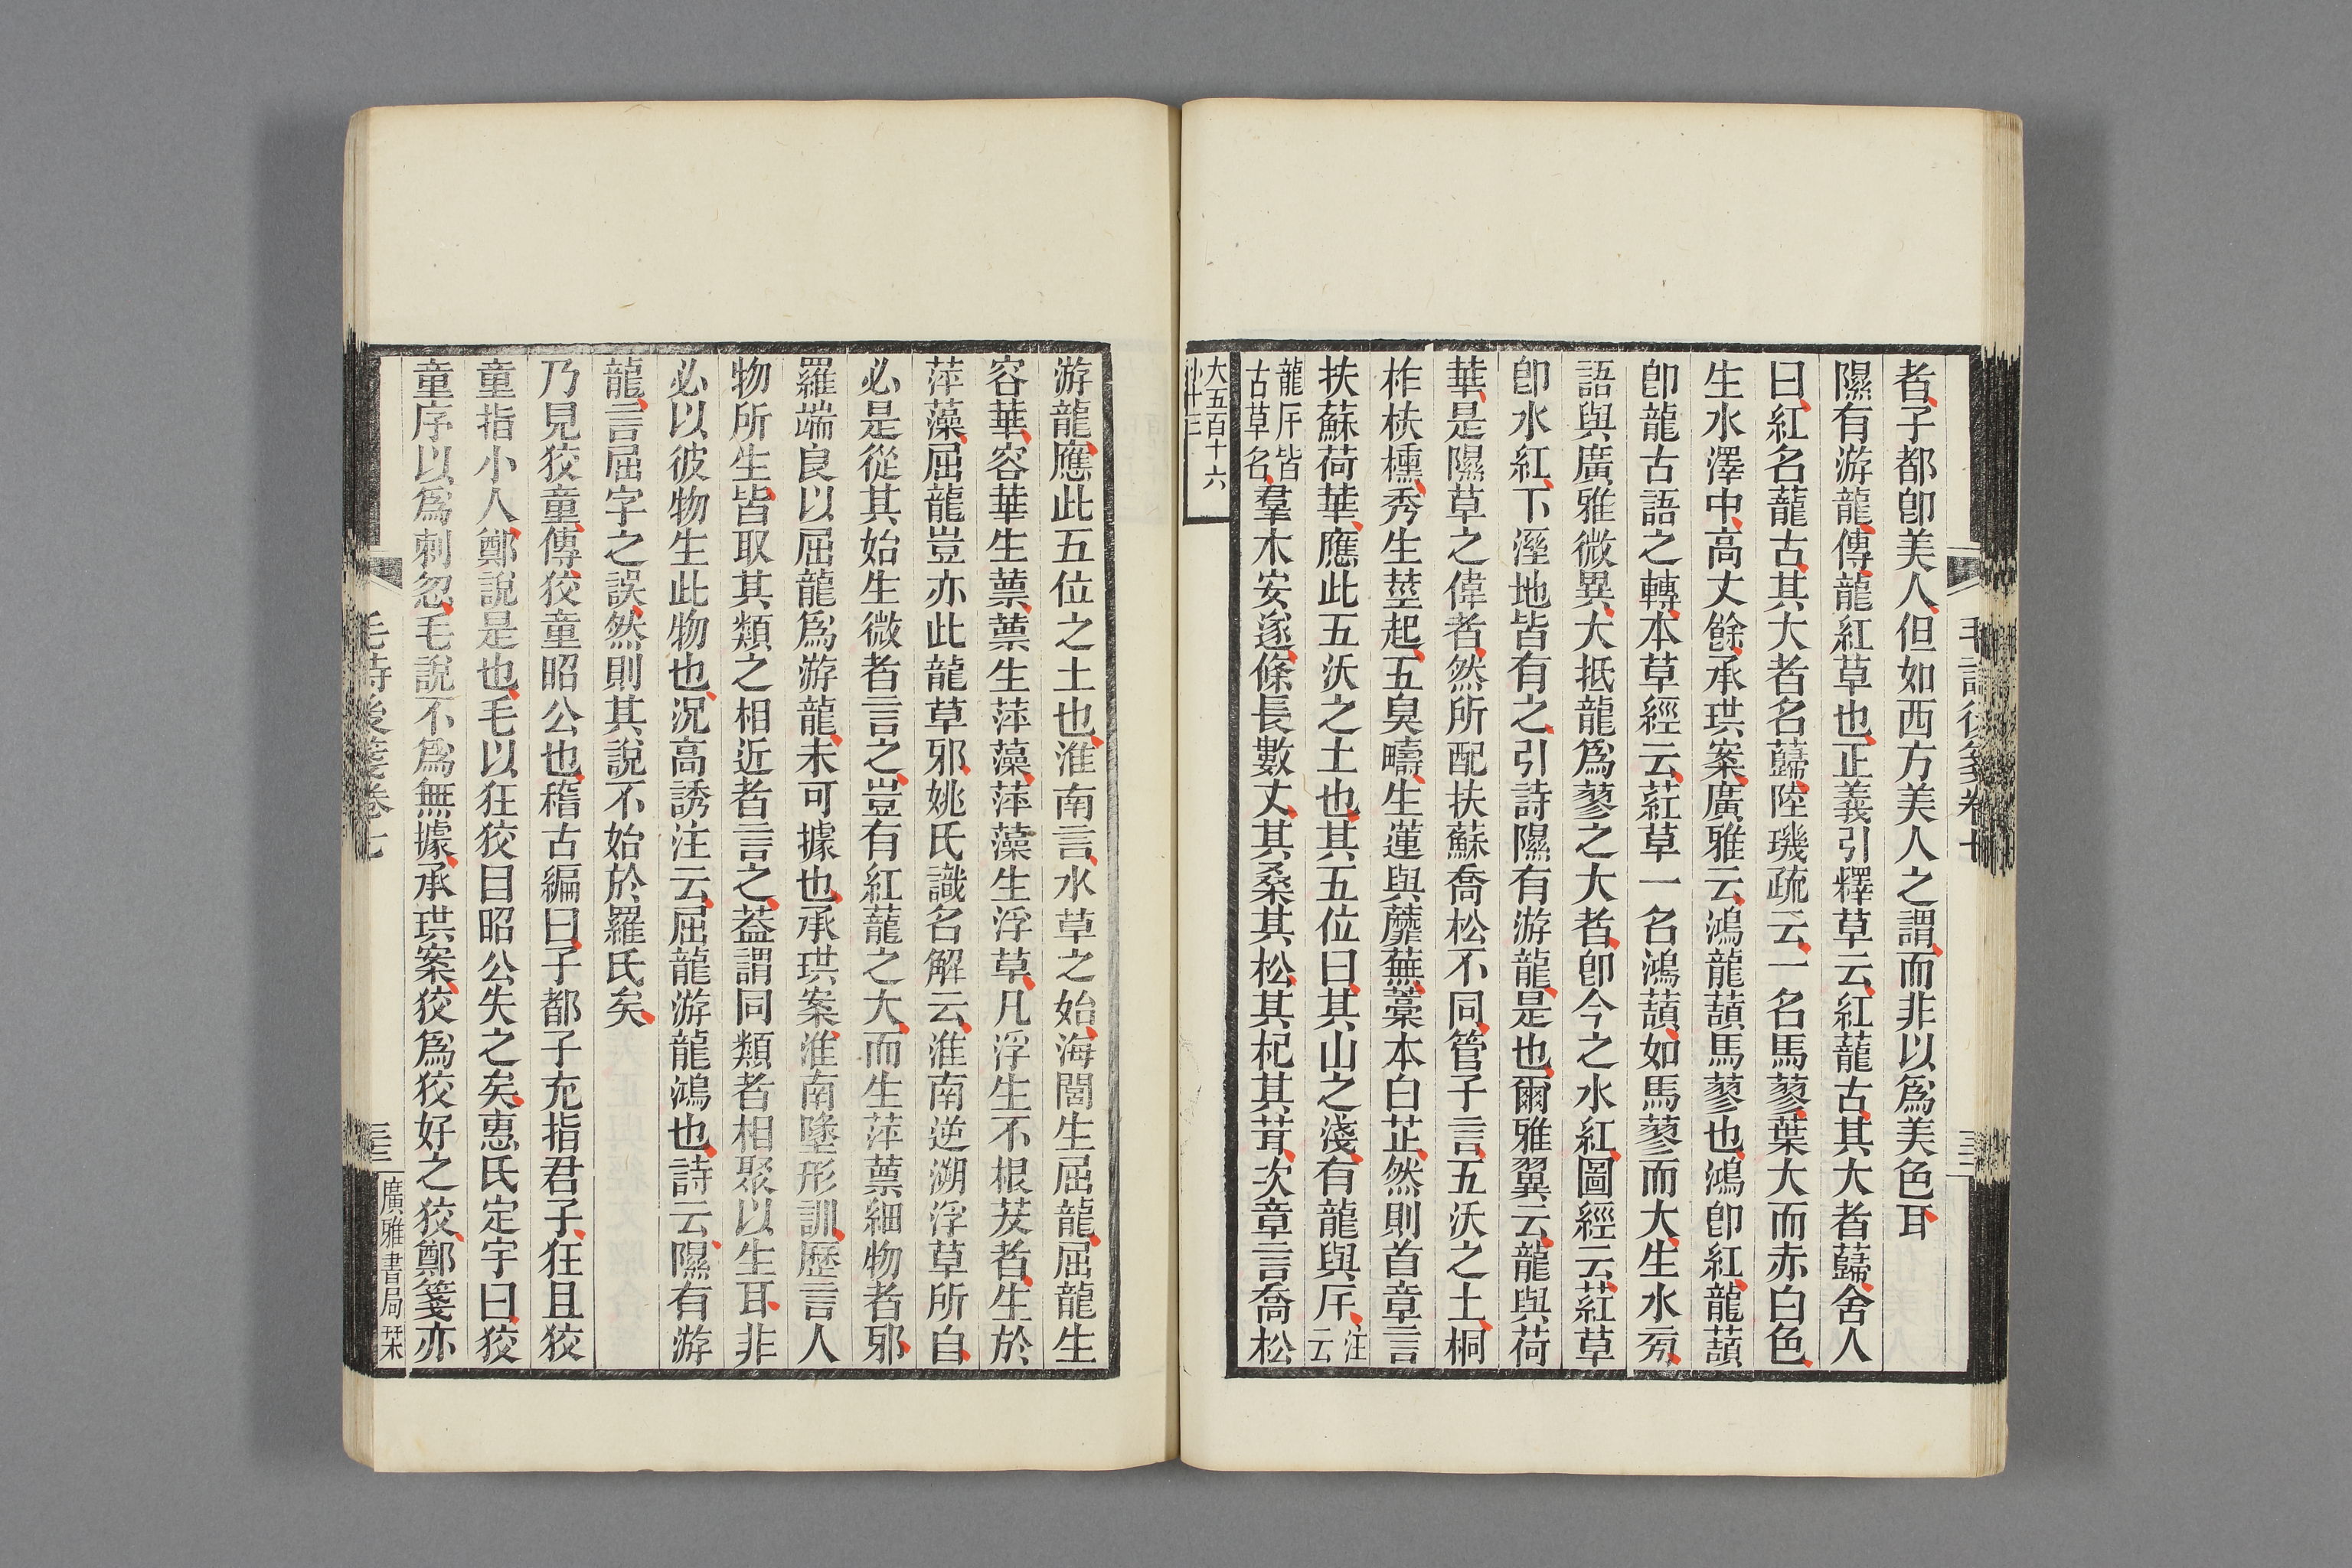 者子都卽美人但如西方美人之謂而非以爲美色耳
隰有游龍傳龍紅草也正義引釋草云紅蘢古其大者蘬舍人
曰紅名蘢古其大者名蘬陸璣疏云一名馬蓼葉大而赤白色
生水澤中高丈餘承珙案廣雅云鴻龍蘔馬蓼也鴻卽紅龍蘔
卽龍古語之轉本草經云葒草一名鴻蘔如馬蓼而大生水㫄
語與廣雅微異大抵龍爲蓼之大者卽今之水紅圖經云葒草
卽水紅下溼地皆有之引詩隰有游龍是也爾雅翼云龍與荷
華是隰草之偉者然所配扶蘇喬松不同管子言五沃之土桐
柞枎櫄秀生莖起五臭疇生蓮與蘼蕪藁本白芷然則首章言
扶蘇荷華應此五沃之土也其五位曰其山之淺有龍與斥注云
龍斥皆古草名羣木安遂條長數丈其桑其松其杞其茸次章言喬松
大五百十六
小廿三
毛詩後箋卷七
游龍應此五位之土也淮南言水草之始海閭生屈龍屈龍生
容華容華生蔈蔈生萍藻萍藻生浮草凡浮生不根茇者生於
萍藻屈龍豈亦此龍草邪姚氏識名解云淮南逆溯浮草所自
必是從其始生微者言之豈有紅蘢之大而生萍蔈細物者邪
羅端良以屈龍爲游龍未可據也承珙案淮南墬形訓歷言人
物所生皆取其類之相近者言之葢謂同類者相聚以生耳非
必以彼物生此物也况高誘注云屈龍游龍鴻也詩云隰有游
龍言屈字之誤然則其說不始於羅氏矣
乃見狡童傳狡童昭公也稽古編曰子都子充指君子狂且狡
童指小人鄭說是也毛以狂狡目昭公失之矣惠氏定宇曰狡
童序以爲刺忽毛說不爲無據承珙案狡爲狡好之狡鄭箋亦
毛詩後箋卷七
三三
廣雅書局栞